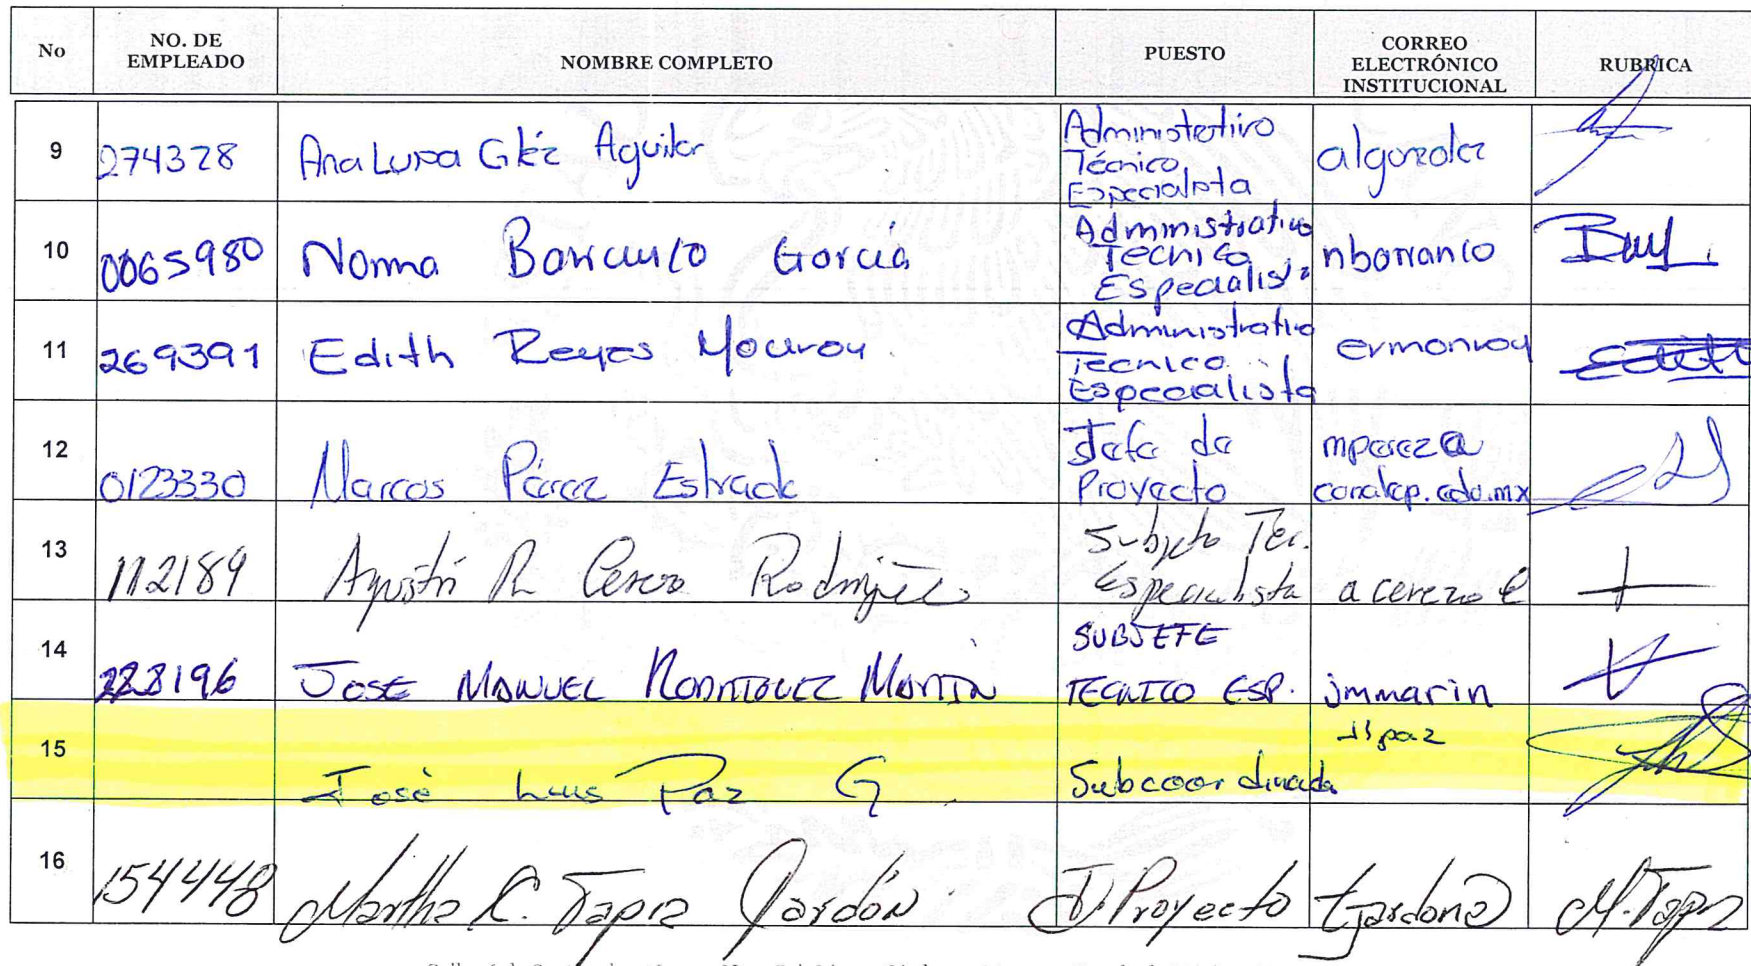 No NO. DE EMPLEADO NOMBRE COMPLETO PUESTO CORREO ELECTRÓNICO INSTITUCIONAL RUBRICA
9 274328 Ana Luisa Glez Aguilar Administrativo Técnico Especialista algonzalez
10 0065980 Norma Barranco García Administrativo Tecnico Especialista nbarranco
11 269391 Edith Reyes Monroy Administrativo Tecnico Especialista ermonroy
12 0123330 Marcos Pérez Estrada Jefe de Proyecto mpereza conalep.edu.mx
13 112189 Agustín R Cerezo Rodríguez Subjefe Téc. Especialista acerezo@
14 228196 JOSE MANUEL RODRIGUEZ MARIN SUBJEFE TECNICO ESP. jmmarin
15 José Luis Paz G Subcoordinador jlpaz
16 154448 Martha C. Tapia Jardón J. Proyecto tjardon@ M. Tapia